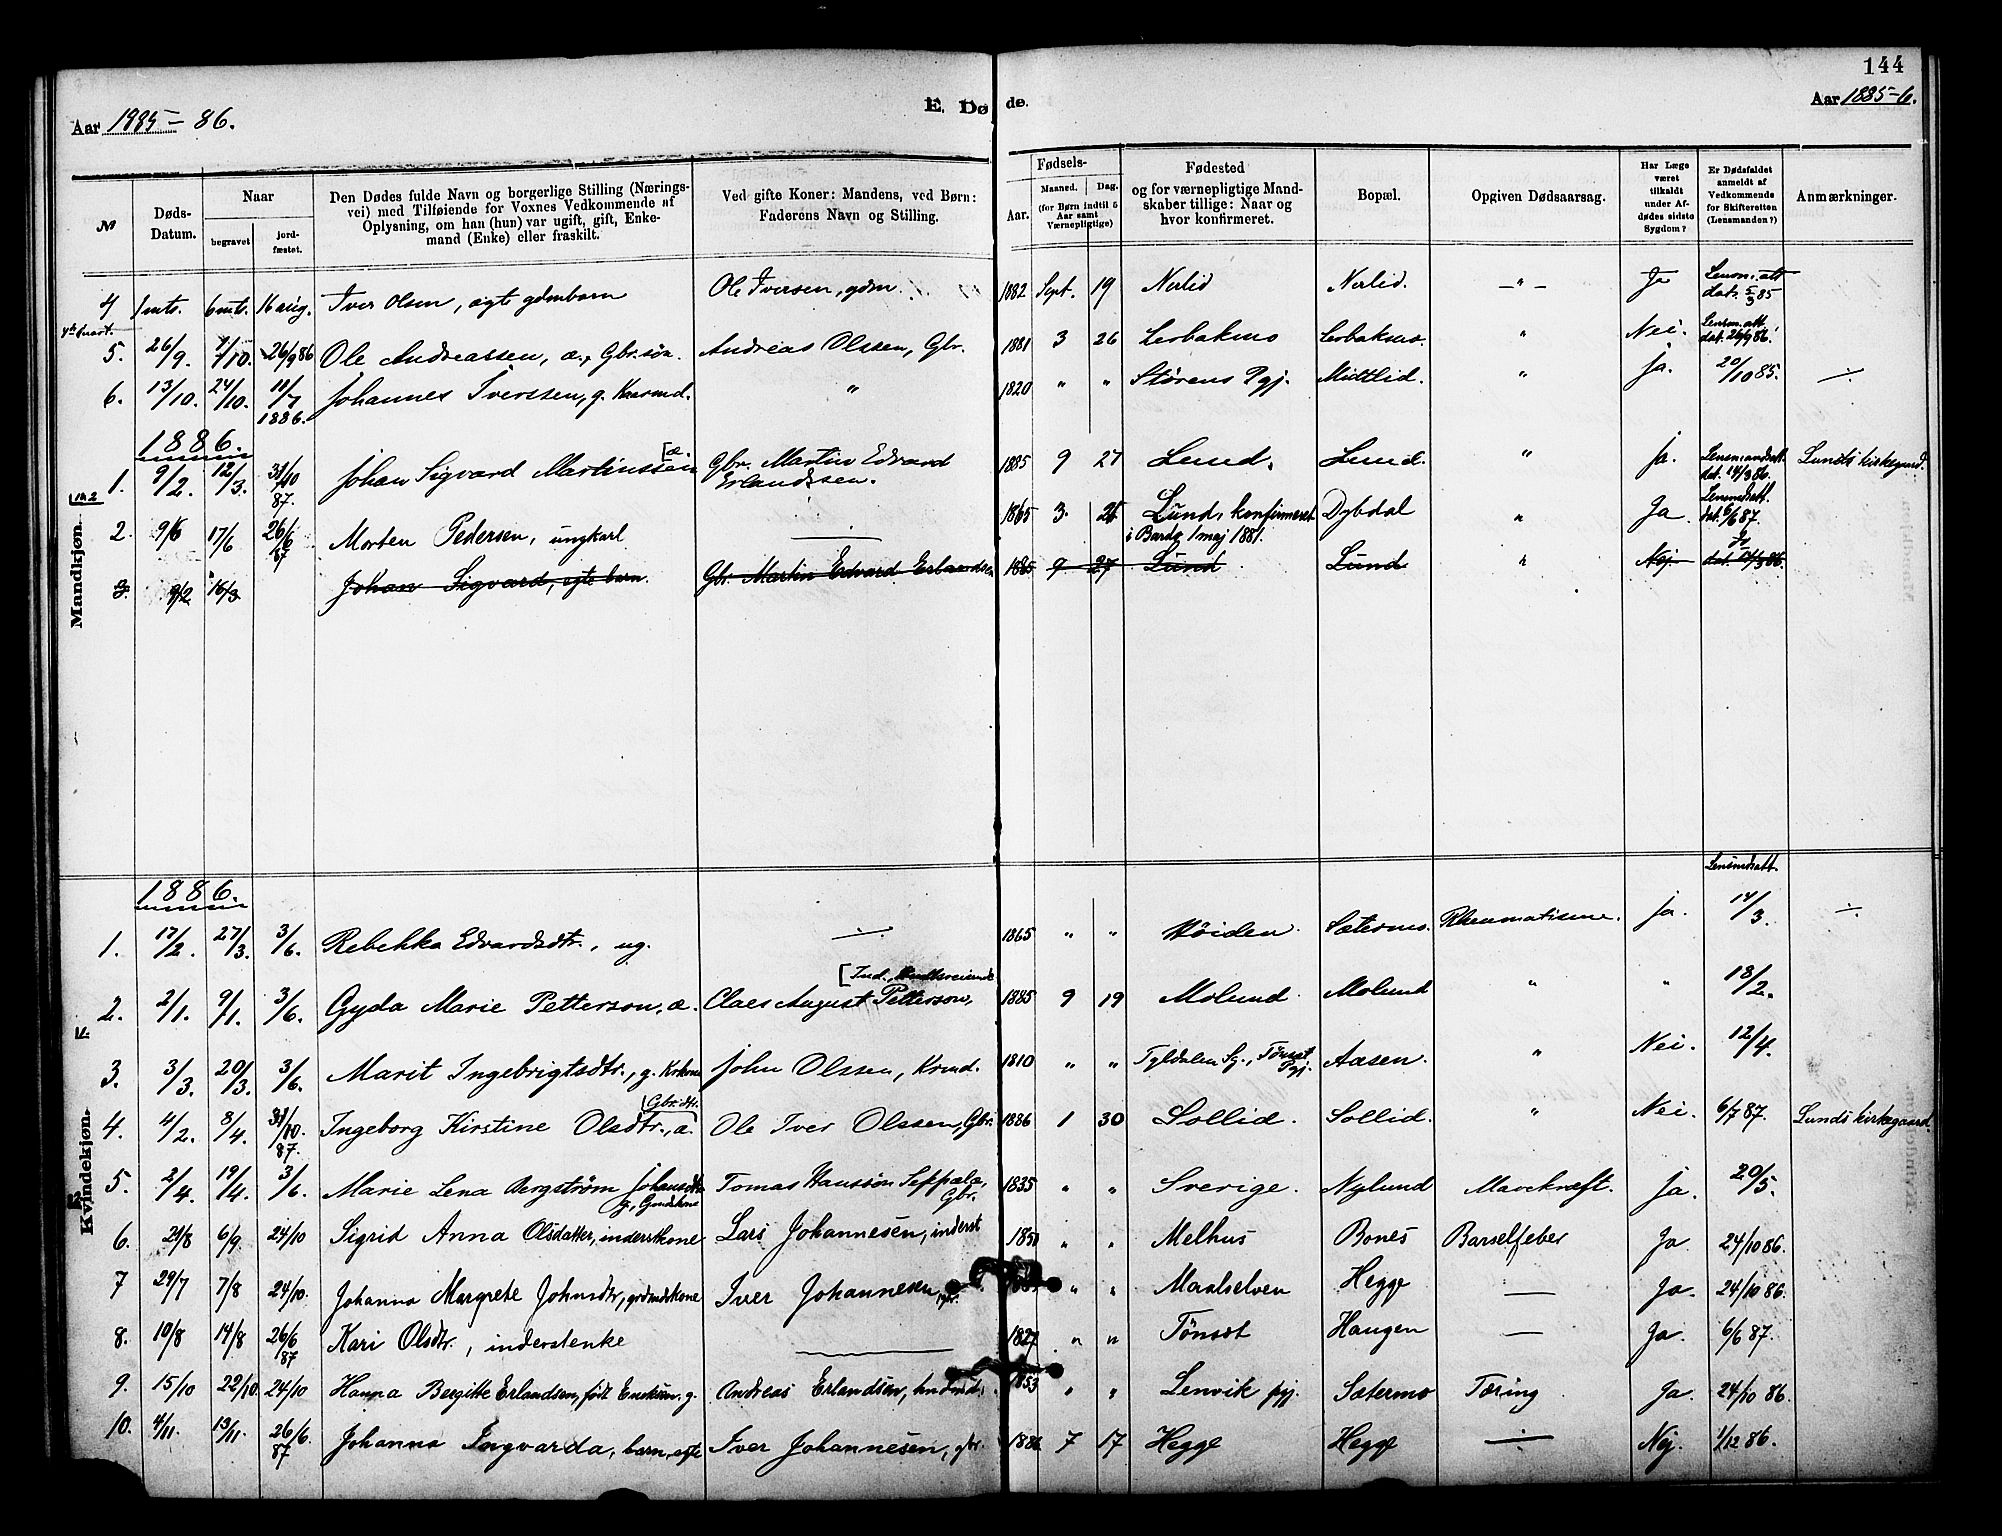 144
Aar 1985-86.
E. Dø de.
Aar 1885-6.
№
Døds-Datum.
Naar
begravet
jord-fæstet.
Den Dødes fulde Navn og borgerlige Stilling (Nærings-
vei) med Tilføiende for Voxnes Vedkommende af
Oplysning, om han (hun) var ugift, gift, Enke-
mand (Enke) eller fraskilt.
Ved gifte Koner: Mandens, ved Børn:
Faderens Navn og Stilling.
Fødsels-
Aar.
Maaned.
Dag.
(for Børn indtil 5
Aar samt
Værnepligtige)
Fødested
og for værnepligtige Mand-
skaber tillige: Naar og
hvor konfirmeret.
Bopæl.
Opgiven Dødsaarsag.
Har Læge
været
tilkaldt
under Af-
dødes sidste
Sygdom?
Er Dødsfaldet
anmeldt af
Vedkommende
for Skifteretten
(Lensmanden?)
Anmærkninger.
Mandkjøn.
4 1 mts. 6 mts. 16 aug. Iver Olsen, ægte gdmbarn Ole Iversen, gdm. 1882 Sept. 19 Nerlid Nerlid. — " — Ja Lensm. att. dat. 5/3 85
5. 26/9. 1/10. 26/9 86 Ole Andreassen, æ., Gbr. søn. Andreas Olssen, Gbr. 1881 3 26 Lerbakmo Lerbakmo. " Nei. Lensm. att. dat. 26/9 86.
6. 13/10. 24/10. 11/7 1886. Johannes Iverssen, g. Kaarmd. " 1820 " " Störens Pgj. Midtlid. " Ja. 20/10 85. ÷
1886.
1. 9/2. 12/3. 31/10 87. Johan Sigvard Martinssen [æ. Gbr. Martin Edvard Erlandssen. 1885 9 27 Lund. Lund. " Ja. Lensmandsatt. dat. 14/3 86. Lunds kirkegaard.
2. 9/6 17/6 26/6 87 Morten Pedersen, ungkarl — 1865 3. 25 Lund, konfirmeret i Bardo 1 maj 1881. Dybdal " Ja. Lensmdsatt. dat. 6/6 87.
3. 9/2 16/3 Johan Sigvard, ægte barn. Gbr. Martin Edvard Erlandsen 1885 9 27 Lund Lund " Nej. dat. 14/3 86.
Kvindekjøn.
1886. Lensmdsatt.
1. 17/2. 27/3. 3/6. Rebekka Edvardsdtr., ug. ÷ 1865 " " Höiden. Sætermo. Rheumatisme. Ja. 14/3. ÷
2. 2/1. 9/1. 3/6. Gyda Marie Petterson, æ. Claes August Petterson, [Ind. 1885 9 19 Molund. Molund " " 18/2.
3. 3/3. 20/3. 3/6. Marit Ingebrigtsdtr., g. Krkone John Olssen, Krmd. 1810 " " Tyldalen Sg., Tönset Pgj. Aasen. " Nei. 12/4.
4. 4/2. 8/4. 31/10. 87. Ingeborg Kirstine Olsdtr., æ. [Gbr.dtr. Ole Iver Olssen, Gbr. 1886 1 30 Sollid. Sollid. " Nei. 6/7 87. Lunds kirkegaard.
5. 2/4. 19/4. 3/6. Marie Lena Bergström Johansdtr. g., Gmdskone Tomas Hansson Seppala, Gbr. 1835 " " Sverige. Nylund Mavekræft. Ja. 20/5.
6. 29/8 6/9 24/10 Sigrid Anna Olsdatter, inderstkone Lars Johannesen, inderst 1851 " " Melhus Bones Barselfeber Ja. 24/10 86.
7 29/7 7/8 24/10. Johanna Margrete Johnsdtr, grdmdskone Iver Johannesen, gbr. " " Maalselven Hegge — Ja. 24/10 86.
8. 10/8 14/8 26/6 87 Kari Olsdtr., inderstenke — 1827 " " Tönset Haugen — Ja. 6/6 87.
9. 15/10 22/10. 24/10 Hanna Bergitte Erlandsen, født g. Andreas Erlandsen, 1853 " " Lenvik pgj. Sætermo Tæring Ja. 24/10 86.
10. 4/11. 13/11 26/6. 87 Johanna Ingvarda, barn, ægte Iver Johannesen, gbr. 1886 7 17 Hegge Hegge ÷ Nej. 1/12 86.